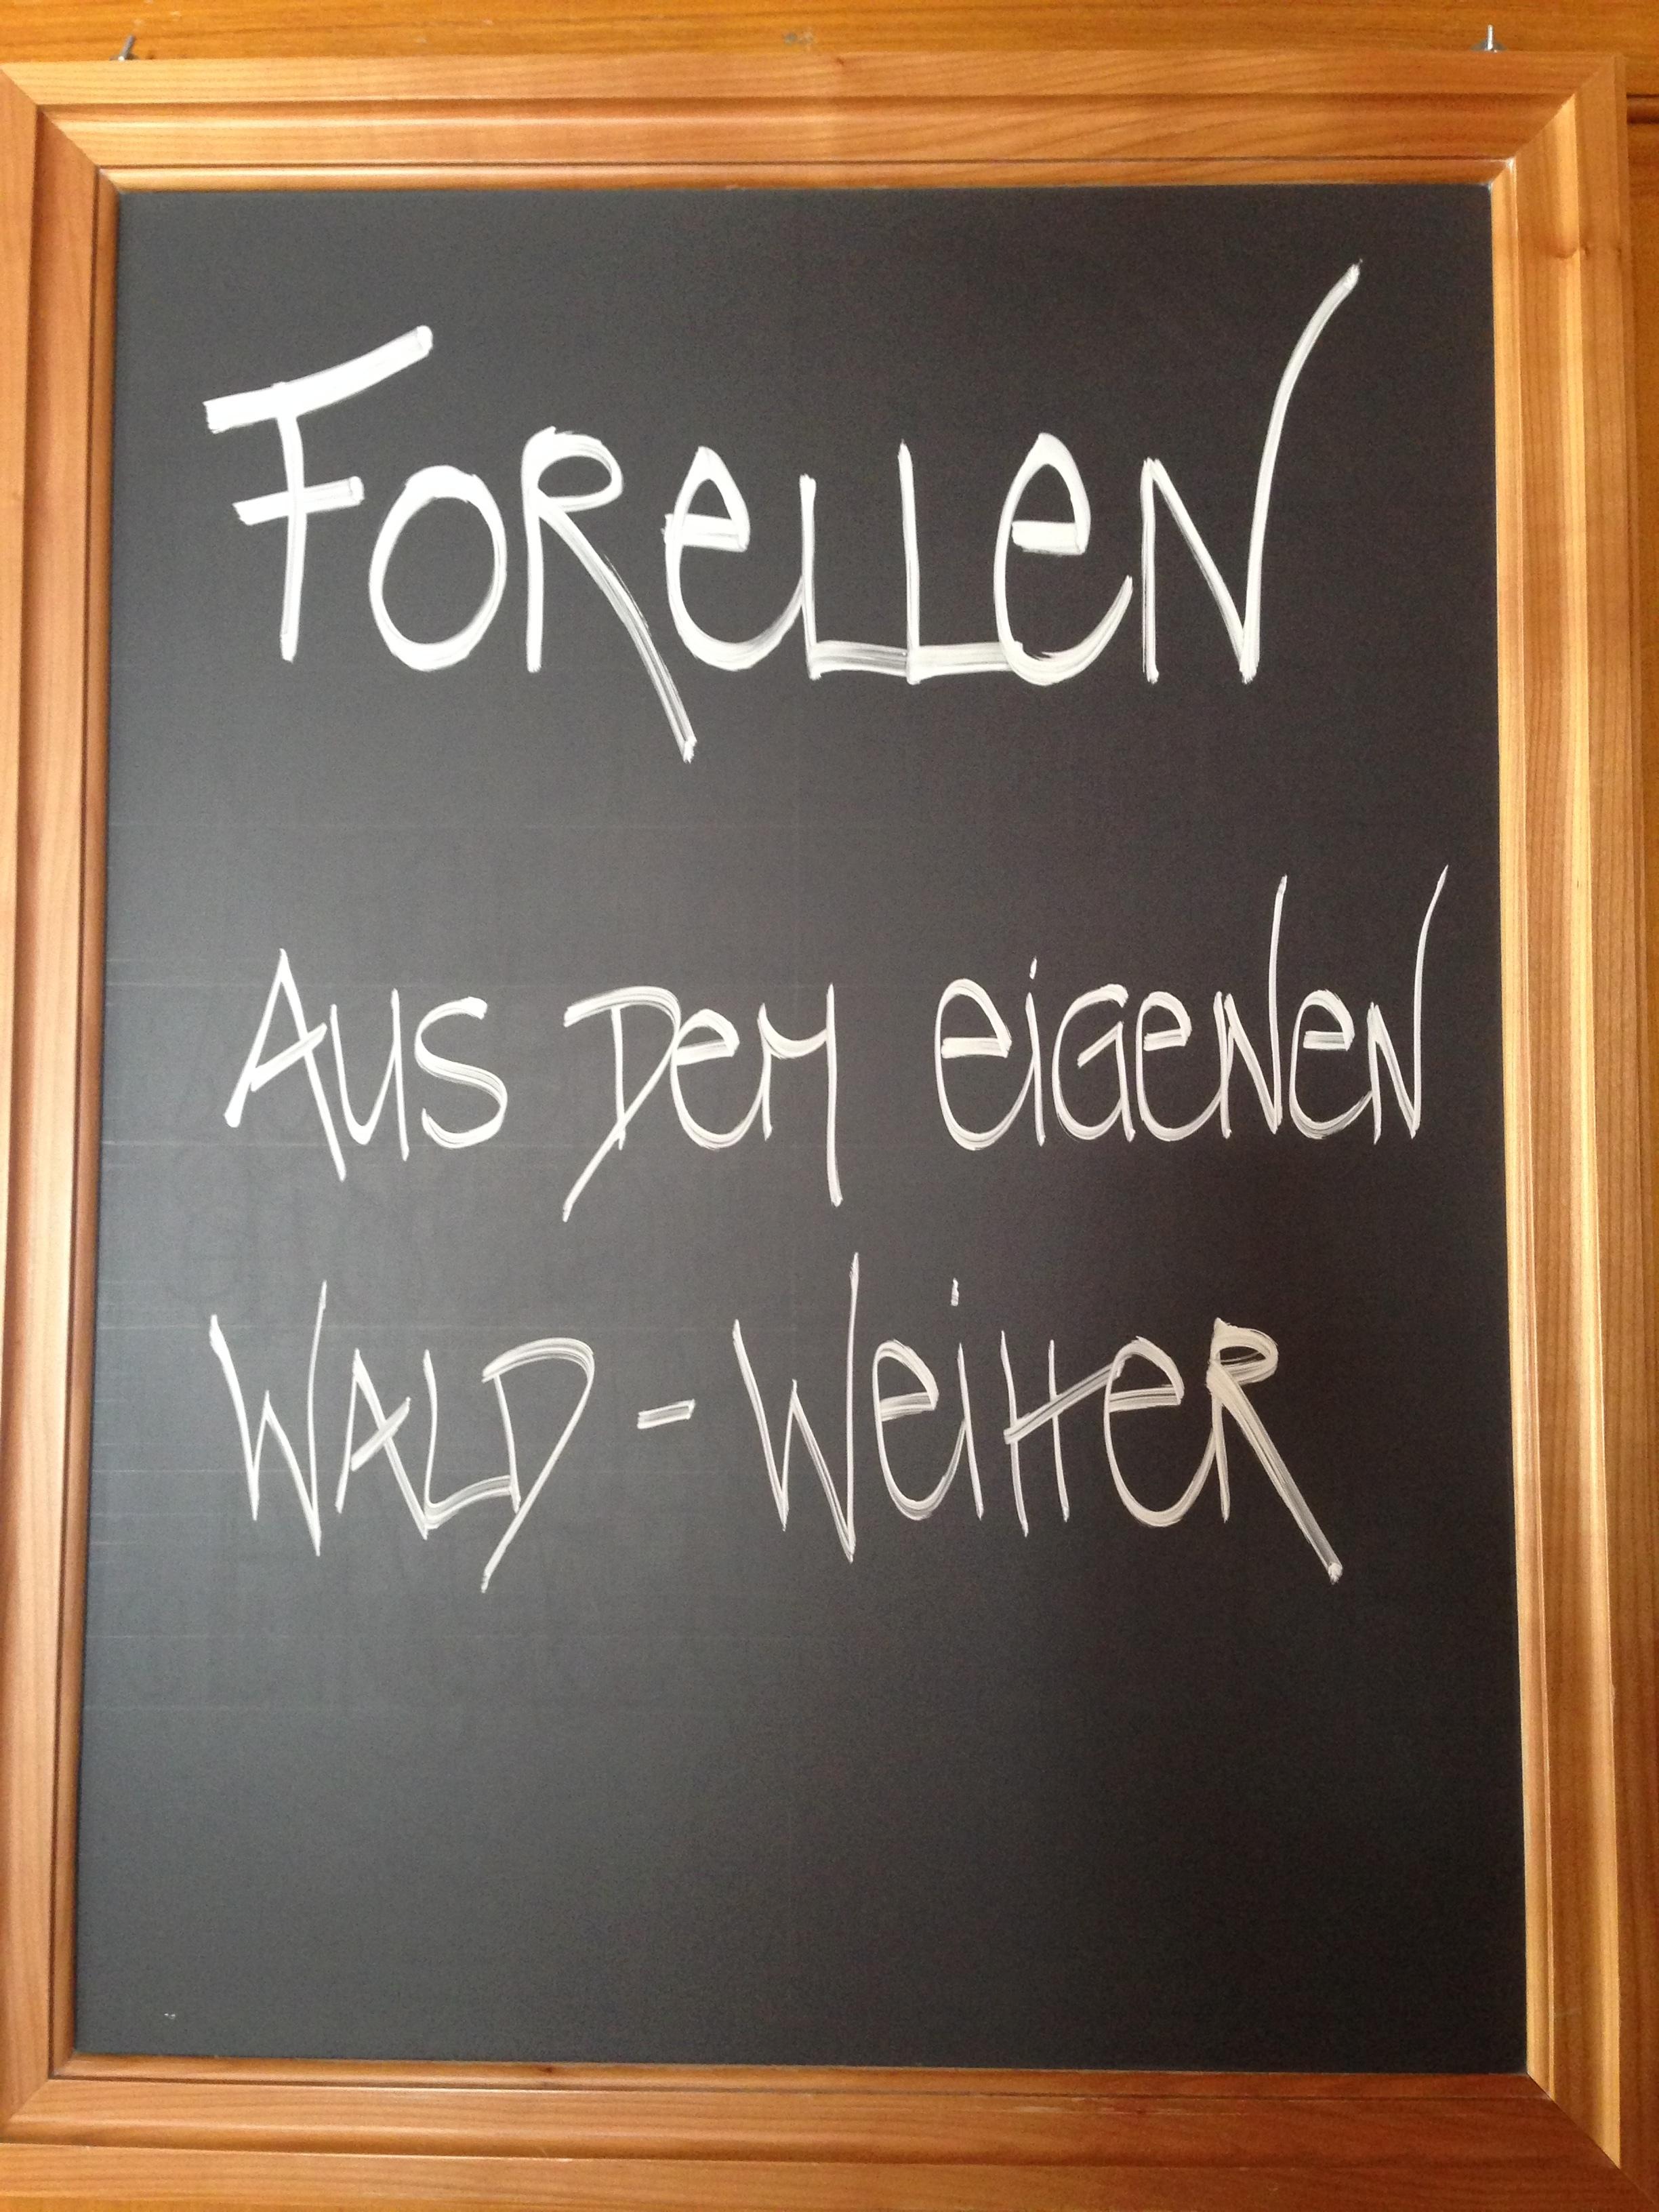 Forellen
Aus dem eigenen
Wald - Weiher